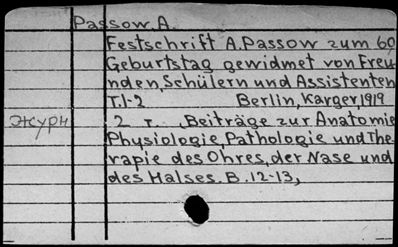 Passow, A.
Festschrift A. Passow zum 60
Geburtstag gewidmet von Freu-
nden, Schülern und Assistenten
T. 1-2 Berlin, Karger, 1919
журн 2 т. „Beiträge zur Anatomie
Physiologie, Pathologie und The-
rapie des Ohres, der Nase und
des Halses. B. 12-13,